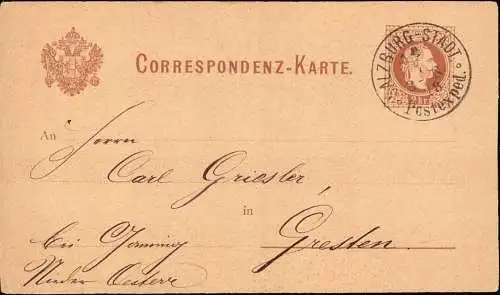 SALZBURG-STADT
Postexped.
CORRESPONDENZ-KARTE.
An Herrn
Carl Griesler,
in
Gresten.
bei
Nieder Oesterr